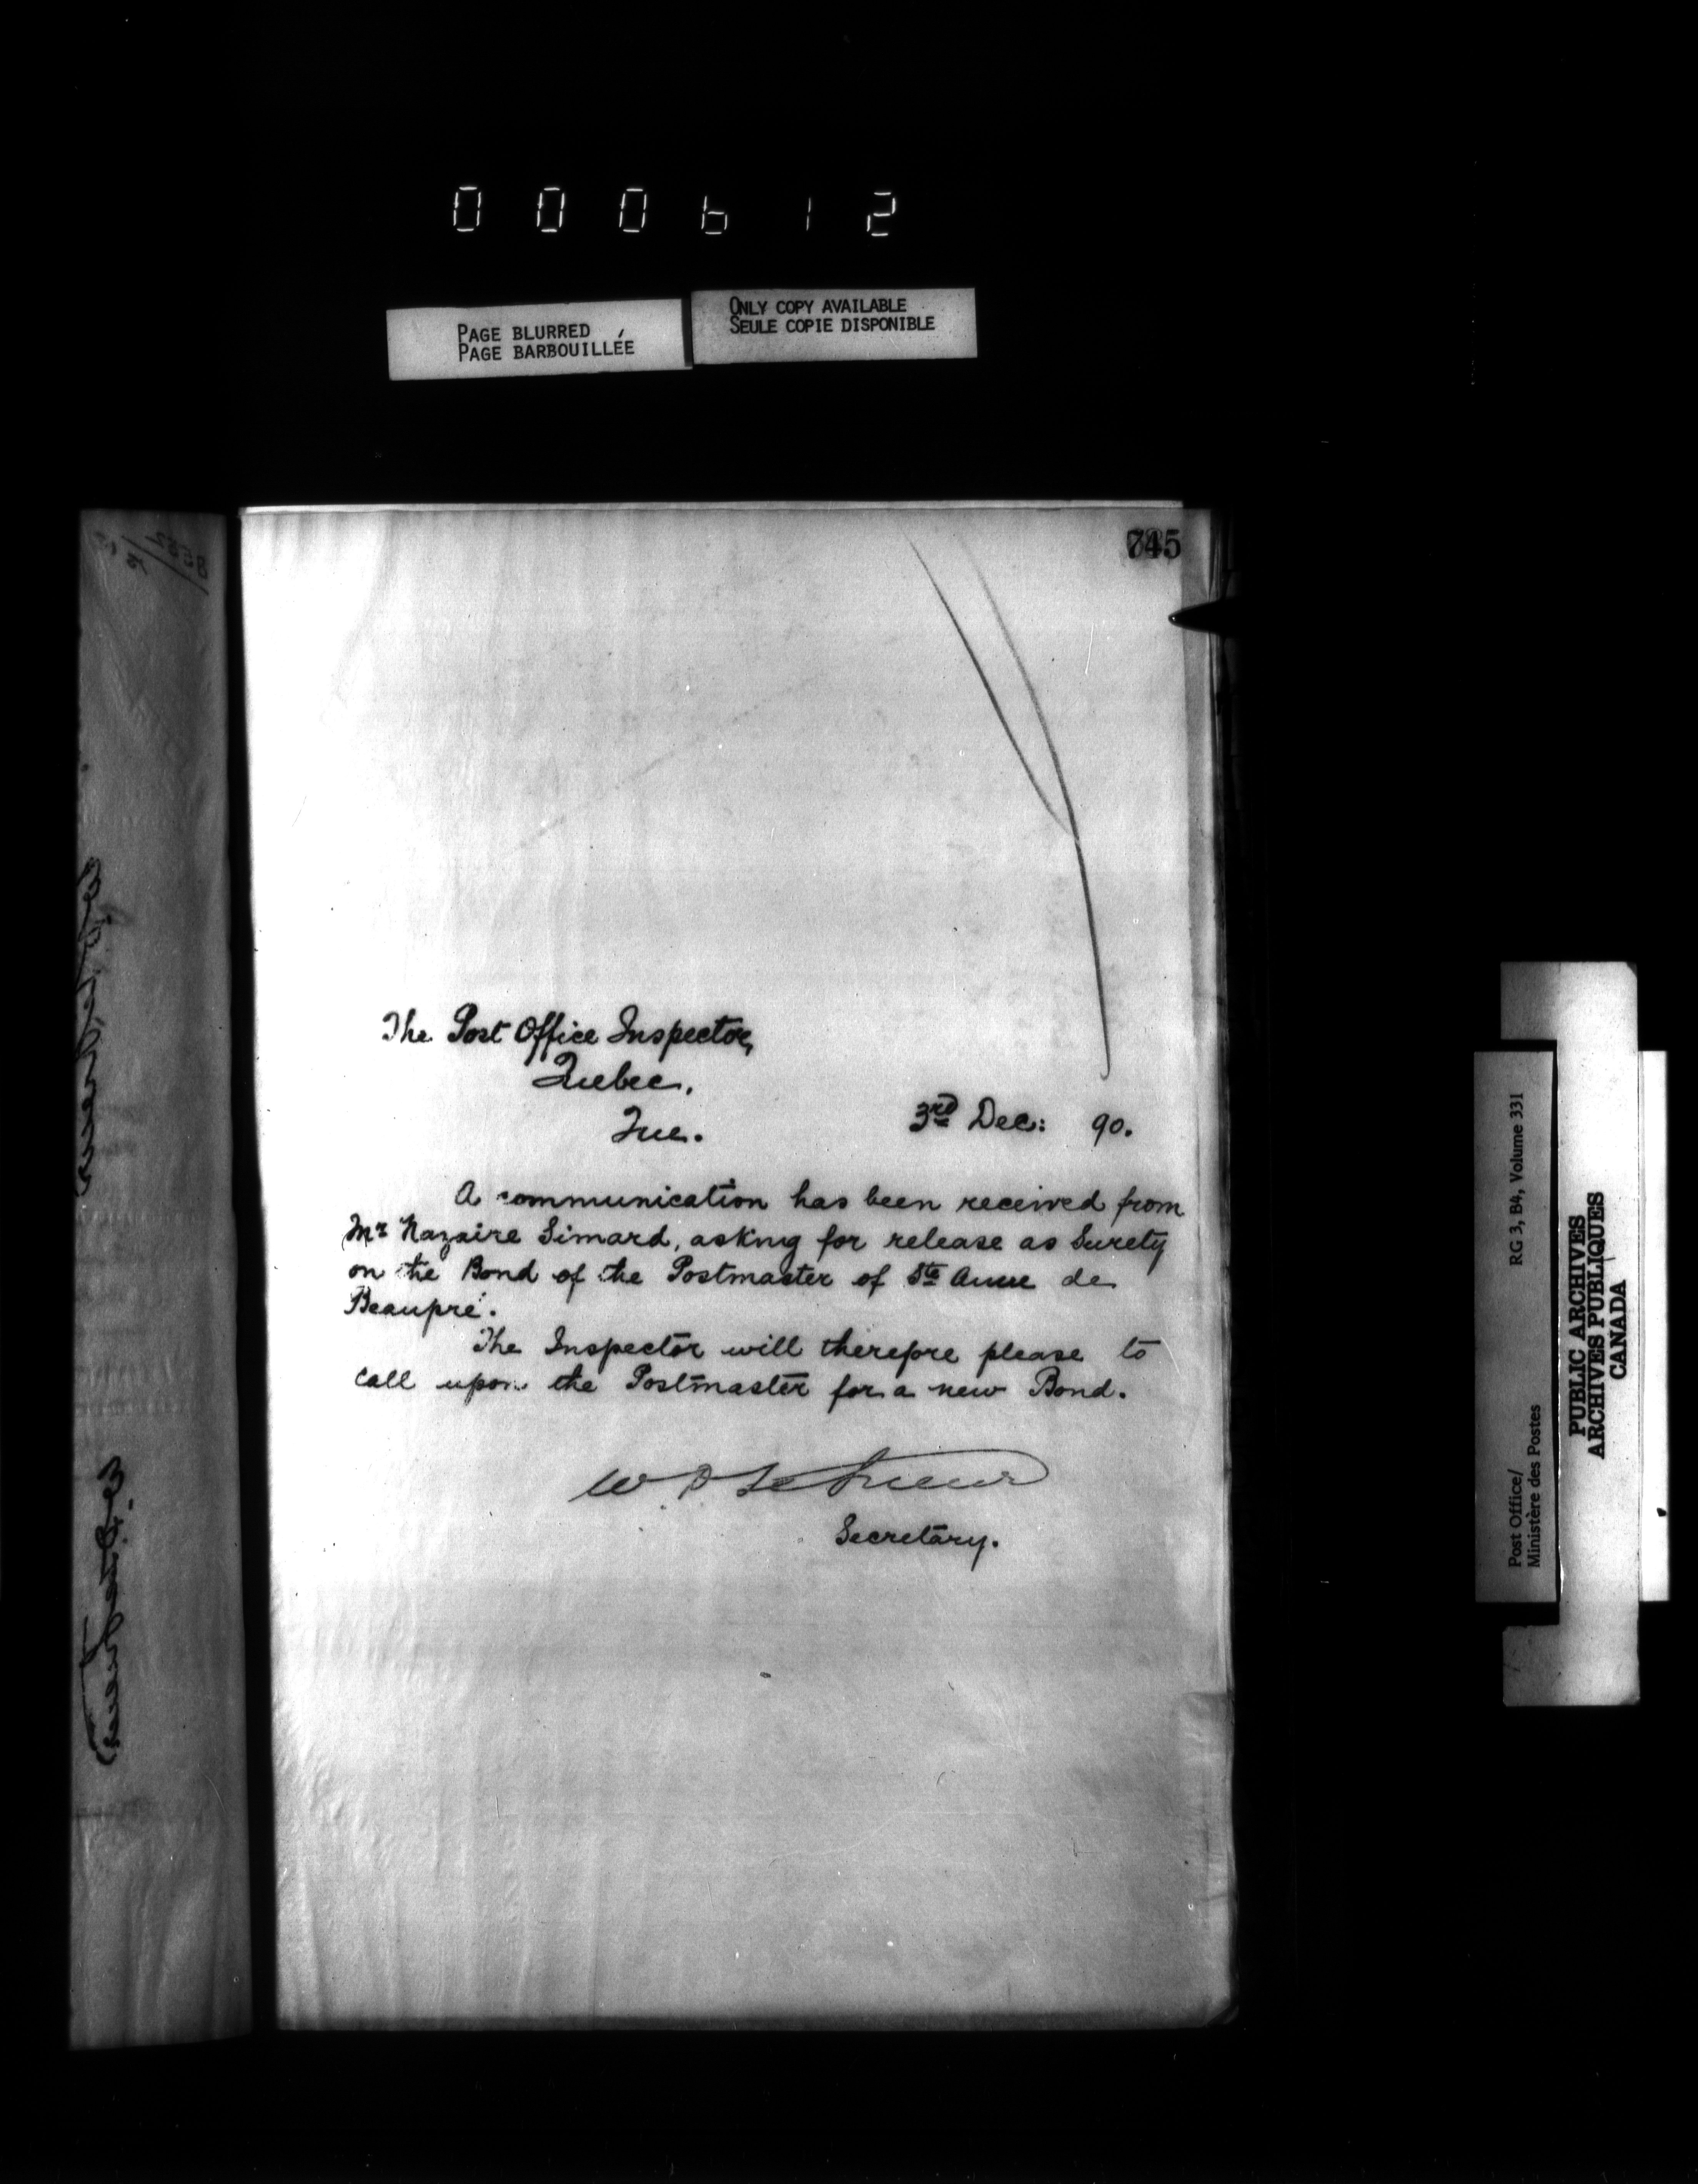 000612
PAGE BLURRED
PAGE BARBOUILLÉE
ONLY COPY AVAILABLE
SEULE COPIE DISPONIBLE
745
The Post Office Inspector,
Quebec,
Que.
3rd Dec: 90.
A communication has been received from
Mr Nazaire Simard, asking for release as Surety
on the Bond of the Postmaster of Ste Anne de
Beaupré.
The Inspector will therefore please to
call upon the Postmaster for a new Bond.
W D LeSueur
Secretary.
Post Office/
Ministère des Postes
RG 3, B4, Volume 331
PUBLIC ARCHIVES
ARCHIVES PUBLIQUES
CANADA